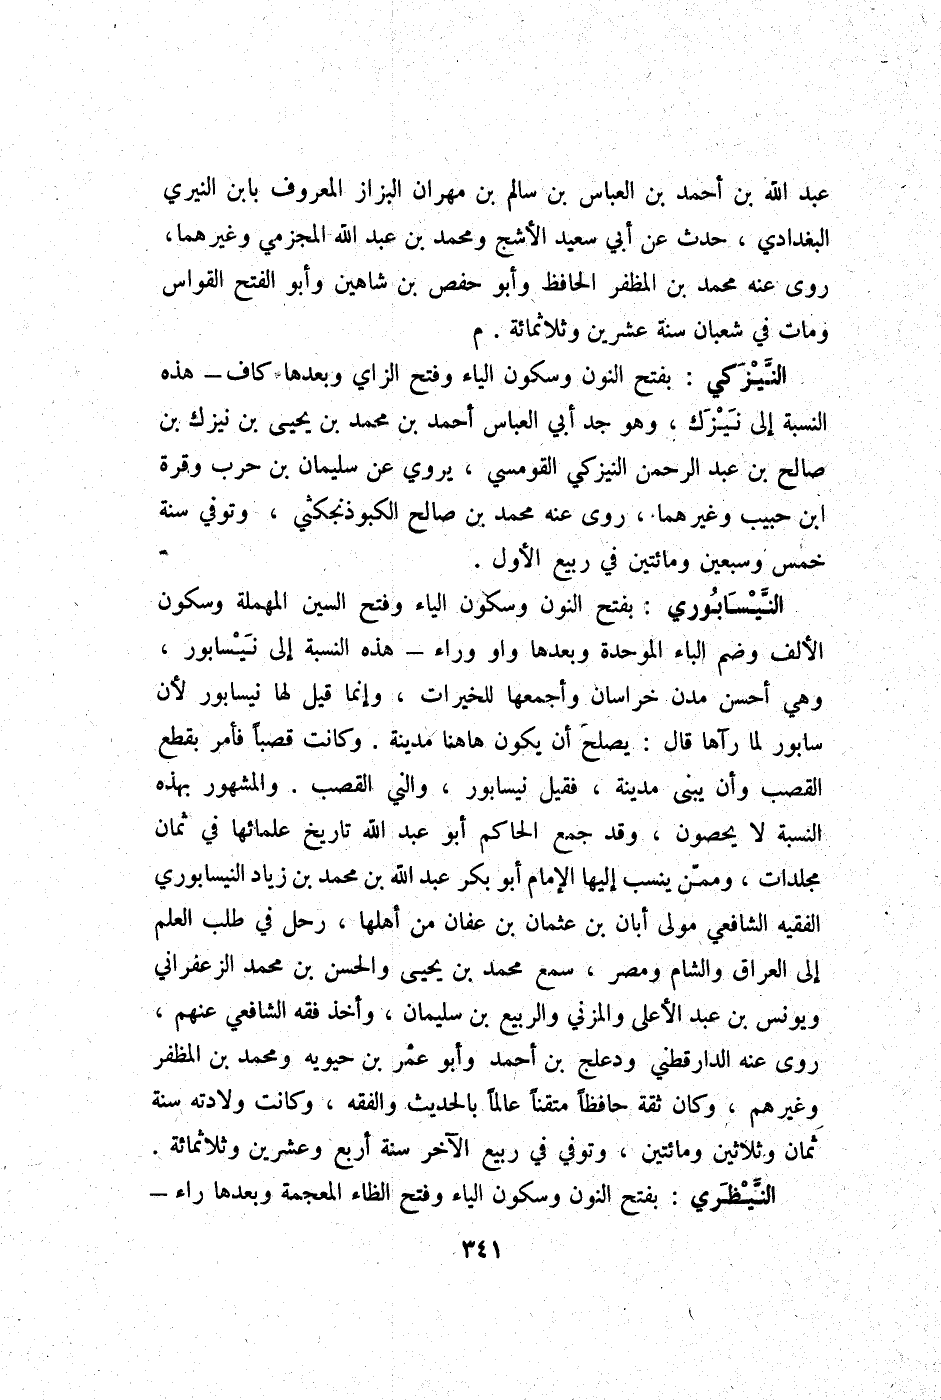 عبد الله بن أحمد بن العباس بن سالم بن مهران البزاز المعروف بابن النيري
البغدادي ، حدث عن أبي سعيد الأشج ومحمد بن عبد الله المجزمي وغيرهما ،
روى عنه محمد بن المظفر الحافظ وأبو حفص بن شاهين وأبو الفتح القواس
ومات في شعبان سنة عشرين وثلاثمائة . م
النَّيْزَكي : بفتح النون وسكون الياء وفتح الزاي وبعدها كاف – هذه
النسبة إلى نَيْزَك ، وهو جد أبي العباس أحمد بن محمد بن يحيى بن نيزك بن
صالح بن عبد الرحمن النيزكي القومسي ، يروي عن سليمان بن حرب وقرة
ابن حبيب وغيرهما ، روى عنه محمد بن صالح الكبوذنجكثي ، وتوفي سنة
خمس وسبعين ومائتين في ربيع الأول .
النَّيْسَابُوري : بفتح النون وسكون الياء وفتح السين المهملة وسكون
الألف وضم الباء الموحدة وبعدها واو وراء – هذه النسبة إلى نَيْسابور ،
وهي أحسن مدن خراسان وأجمعها للخيرات ، وإنما قيل لها نيسابور لأن
سابور لما رآها قال : يصلح أن يكون هاهنا مدينة . وكانت قصباً فأمر بقطع
القصب وأن يبنى مدينة ، فقيل نيسابور ، والني القصب . والمشهور بهذه
النسبة لا يحصون ، وقد جمع الحاكم أبو عبد الله تاريخ علمائها في ثمان
مجلدات ، وممّن ينسب إليها الإمام أبو بكر عبد الله بن محمد بن زياد النيسابوري
الفقيه الشافعي مولى أبان بن عثمان بن عفان من أهلها ، رحل في طلب العلم
إلى العراق والشام ومصر ، سمع محمد بن يحيى والحسن بن محمد الزعفراني
ويونس بن عبد الأعلى والمزني والربيع بن سليمان ، وأخذ فقه الشافعي عنهم ،
روى عنه الدارقطني ودعلج بن أحمد وأبو عمر بن حيويه ومحمد بن المظفر
وغيرهم ، وكان ثقة حافظاً متقناً عالماً بالحديث والفقه ، وكانت ولادته سنة
ثمان وثلاثين ومائتين ، وتوفي في ربيع الآخر سنة أربع وعشرين وثلاثمائة .
النَّيْظَري : بفتح النون وسكون الياء وفتح الظاء المعجمة وبعدها راء –
٣٤١